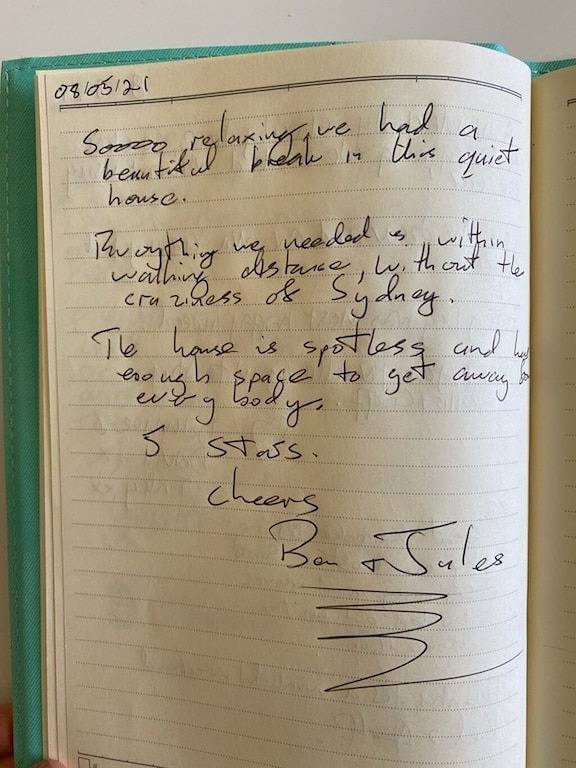 08/05/21
Soooo relaxing, we had a
beautiful break in this quiet
house.
Everything we needed is within
walking distance, without the
craziness of Sydney.
The house is spotless and has
enough space to get away from
every body.
5 stars.
cheers
Ben + Jules